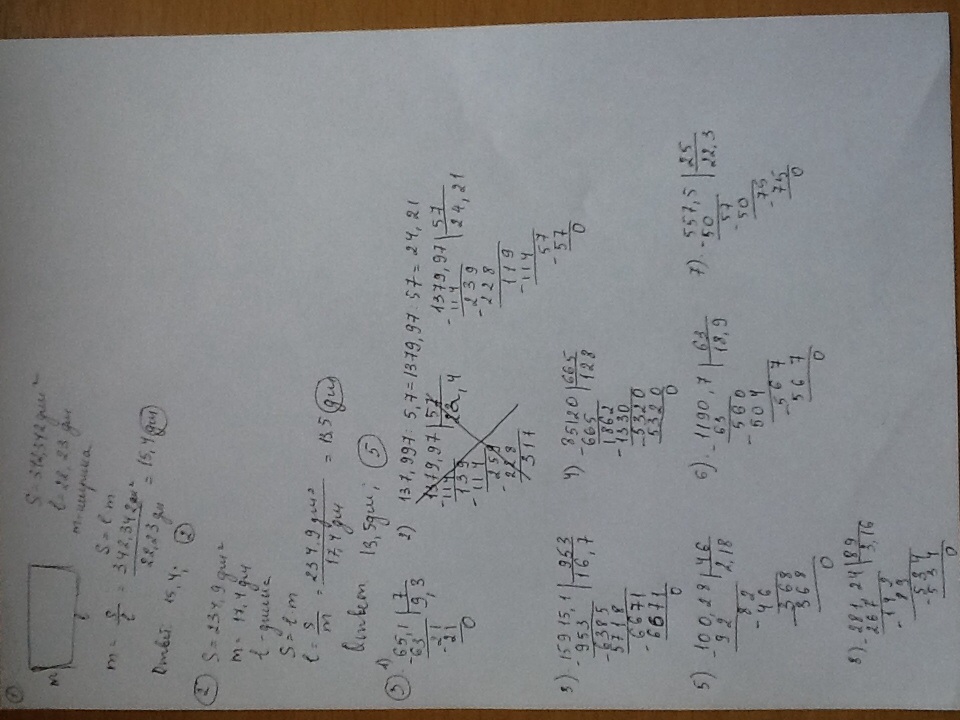 ①
m
l
S = 342,342 дм²
l = 22,23 дм
m - ширина
S = l m
m = S/l = 342,342 дм² / 22,23 дм = 15,4 дм
Ответ: 15,4; ②
② S = 234,9 дм²
m = 17,4 дм
l - длина
S = l m
l = S/m = 234,9 дм² / 17,4 дм = 13,5 дм
Ответ 13,5 дм; ⑤
③ 1) 65,1 | 7
63 9,3
- 21
21
0
2) 137,997 : 5,7 = 1379,97 : 57 = 24,21
- 1379,97 | 57
114 24,21
- 239
228
119
- 114
57
- 57
0
3) - 15915,1 | 953
953 16,7
- 6385
5718
- 6671
6671
0
4) - 85120 | 665
665 128
- 1862
1330
- 5320
5320
0
5) - 100,28 | 46
92 2,18
- 82
46
- 368
368
0
6) - 1190,7 | 63
63 18,9
- 560
504
- 567
567
0
7) - 557,5 | 25
50 22,3
- 57
50
- 75
75
0
8) - 281,24 | 89
267 3,16
- 142
89
- 534
534
0